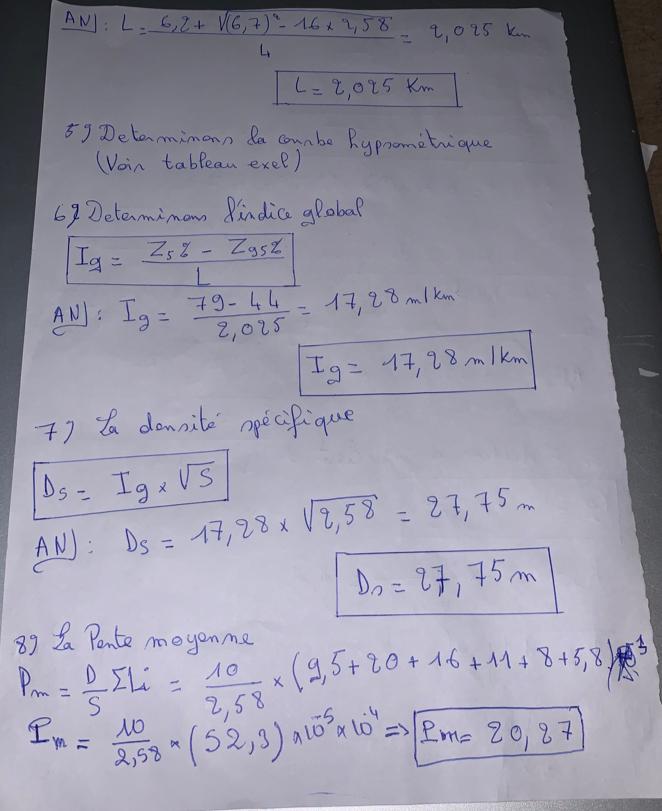 AN: L = 6,2 + √(6,7)² - 16 x 2,58 / 4 = 2,025 Km
L = 2,025 Km
5) Determinons la courbe hypsométrique
(Voir tableau exel)
6) Determinons l'indice global
Ig = Z5% - Z95% / L
AN: Ig = 79 - 44 / 2,025 = 17,28 m/km
Ig = 17,28 m/km
7) La densité spécifique
Ds = Ig x √S
AN: Ds = 17,28 x √2,58 = 27,75 m
Ds = 27,75 m
8) La Pente moyenne
Pm = D/S ΣLi = 10/2,58 x (9,5 + 20 + 16 + 11 + 8 + 5,8)
Pm = 10/2,58 x (52,3) x 10⁻⁵ x 10⁴ => Pm = 20,27